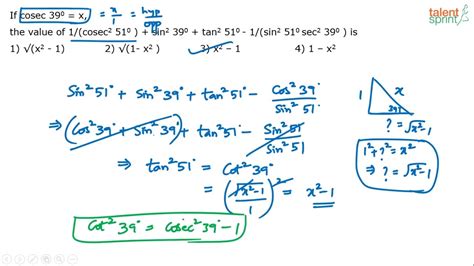 talent
sprint
If cosec 39⁰ = x, = x/1 = hyp/opp
the value of 1/(cosec² 51⁰ ) + sin² 39⁰ + tan² 51⁰ - 1/(sin² 51⁰ sec² 39⁰ ) is
1) √(x² - 1) 2) √(1- x² ) 3) x² – 1 4) 1 – x²
Sin² 51° + Sin² 39° + tan² 51° - Cos² 39°/Sin² 51°
⇒ (Cos² 39° + Sin² 39°) + tan² 51° - Sin² 51°/Sin² 51°
⇒ tan² 51° = Cot² 39°
= (√x²-1/1)² = x²-1
Cot² 39° = Cosec² 39° - 1
1 x
39°
? = √x²-1
1² + ?² = x²
⇒ ? = √x²-1